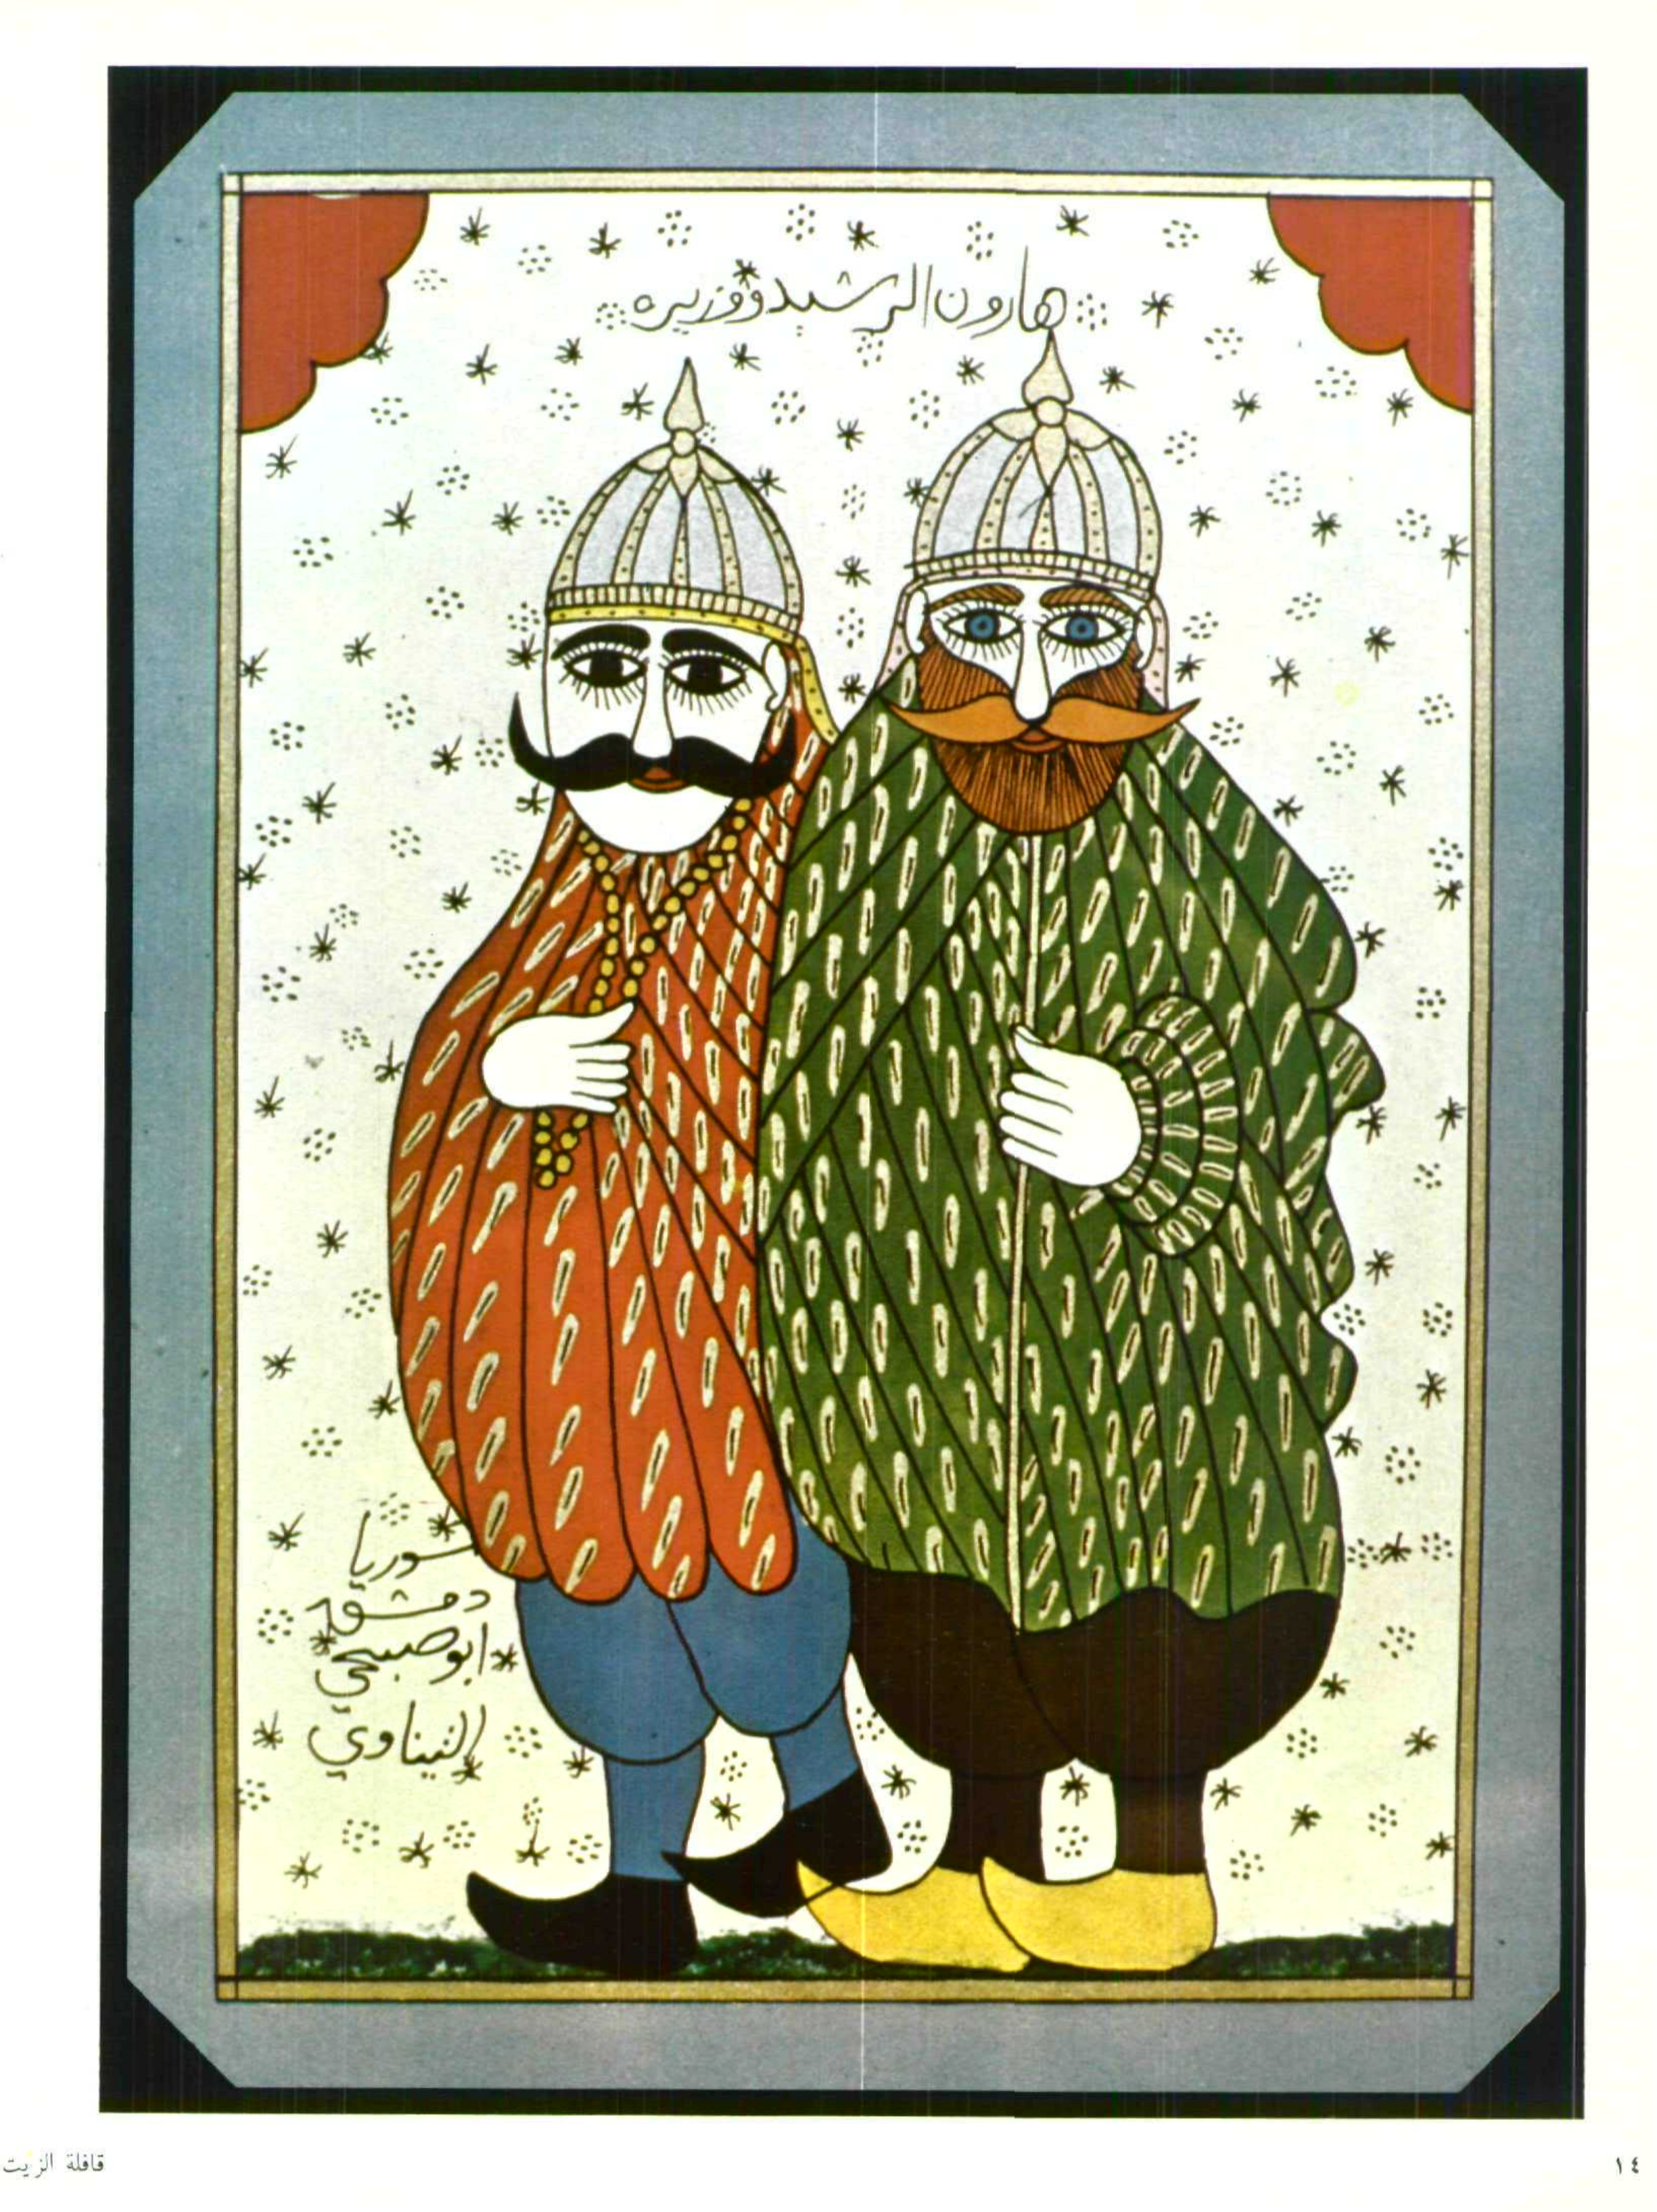 هارون الرشيد ووزيره
سوريا
دمشق
ابو صبحي
التيناوي
١٤
قافلة الزيت